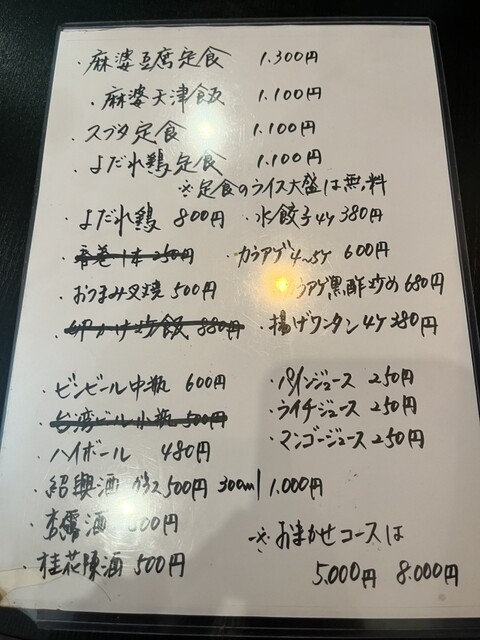 ・麻婆豆腐定食 1.300円
・麻婆天津飯 1.100円
・スブタ定食 1.100円
・よだれ鶏定食 1.100円
※定食のライス大盛は無料
・よだれ鶏 800円 ・水餃子4ケ 380円
・春巻1本 250円 ・カラアゲ4〜5ケ 600円
・おつまみ叉焼 500円 ラアゲ黒酢炒め 680円
・卵かけ炒飯 880円 ・揚げワンタン4ケ 380円
・ビンビール中瓶 600円 ・パインジュース 250円
・台湾ビール小瓶 500円 ・ライチジュース 250円
・ハイボール 480円 ・マンゴージュース 250円
・紹興酒 グラス500円 300ml 1.000円
・杏露酒 500円 ※おまかせコースは
・桂花陳酒 500円 5.000円 8.000円